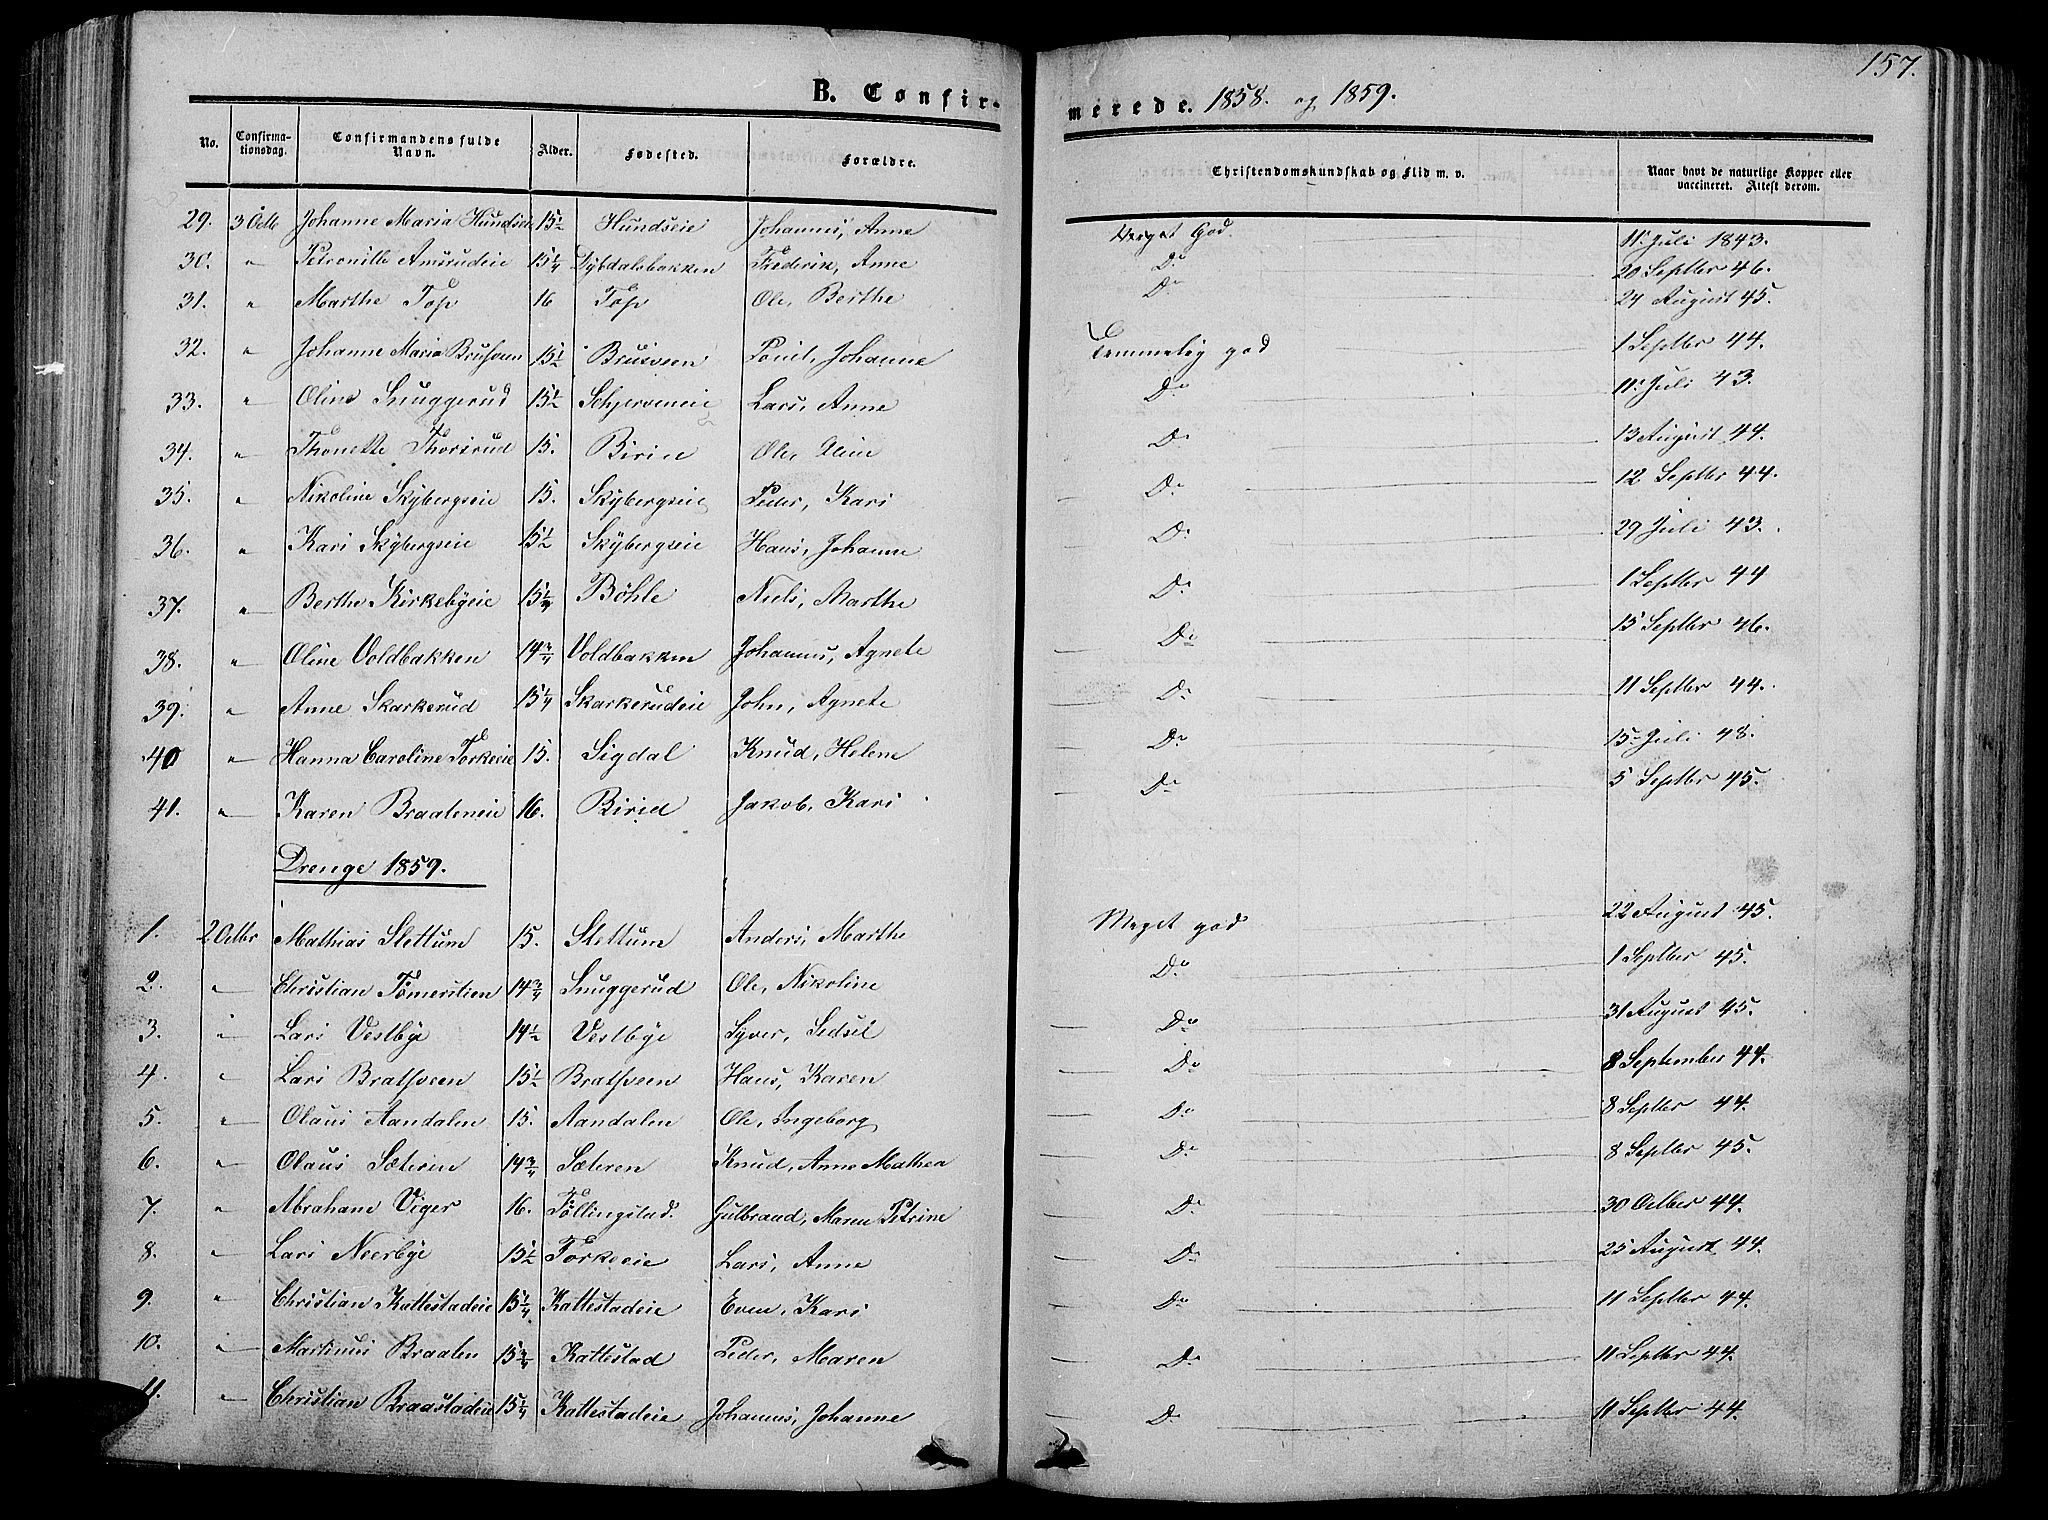 157.
B. Confirmerede. 1858. og 1859.
No. Confirmationsdag. Confirmandens fulde Navn. Alder. Fødested. Forældre. Christendomskundskab og Flid m. v. Naar havt de naturlige Kopper eller vaccineret. Attest derom.
29. 3 Octb Johanne Maria Hundseie 15 1/2 Hundseie Johannes, Anne Meget God 11 Juli 1843.
30. " Petronille Amsrudeie 15 1/4 Dybdalsbakken Frederik, Anne Do 20 Septbr 46.
31. " Marthe Top 16 Top Ole, Berthe Do 24 August 45.
32. " Johanne Maria Brusveen 15 1/2 Brusveen Poul, Johanne Temmelig god 1 Septbr 44.
33. " Oline Snuggerud 15 1/2 Schjerveneie Lars, Anne Do 11 Juli 43.
34. " Thonette Thorsrud 15. Birid Ole, Oline Do 13 August 44.
35. " Nikoline Skybergseie 15. Skybergseie Peder, Kari Do 12 Septbr 44.
36. " Kari Skybergseie 15 1/2 Skybergseie Hans, Johanne Do 29 Juli 43.
37. " Berthe Kirkebyeie 15 1/4 Böhle Niels, Marthe Do 1 Septbr 44
38. " Oline Voldbakken 14 3/4 Voldbakken Johannes, Agnete Do 15 Septbr 46.
39. " Anne Skarkerud 15 1/4 Skarkerudeie John, Agnete Do 11 Septbr 44.
40 " Hanna Caroline Torkeeie 15. Sigdal Knud, Helene Do 15 Juli 48.
41. " Karen Braateneie 16. Birid Jakob, Kari Do 5 Septbr 45.
Drenge 1859.
1. 2 Octbr Mathias Slettum 15. Slettum Anders, Marthe Meget god 22 August 45.
2. " Christian Tömerstien 14 3/4 Snuggerud Ole, Nikoline Do 1 Septbr 45.
3. " Lars Vestbye 14 1/2 Vestbye Syver, Sidsel Do 31 August 45.
4. " Lars Bratsveen 15 1/2 Bratsveen Hans, Karen Do 8 September 44.
5. " Olaus Aandalen 15. Aandalen Ole, Ingeborg Do 8 Septbr 44.
6. " Olaus Sæteren 14 3/4 Sæteren Knud, Anne Mathea Do 8 Septbr 45.
7. " Abraham Viger 16. Töllingstad. Gulbrand, Maren Petrine Do 30 Octber 44.
8. " Lars Neerbye 15 1/2 Torkeeie Lars, Anne Do 25 August 44.
9. " Christian Kattestadeie 15 1/4 Kattestadeie Even, Kari Do 11 Septbr 44.
10. " Martinus Braaten 15 3/4 Kattestad Peder, Maren Do 11 Septbr 44.
11. " Christian Braastadeie 15 1/4 Kattestadeie Johannes, Johanne Do 11 Septbr 44.